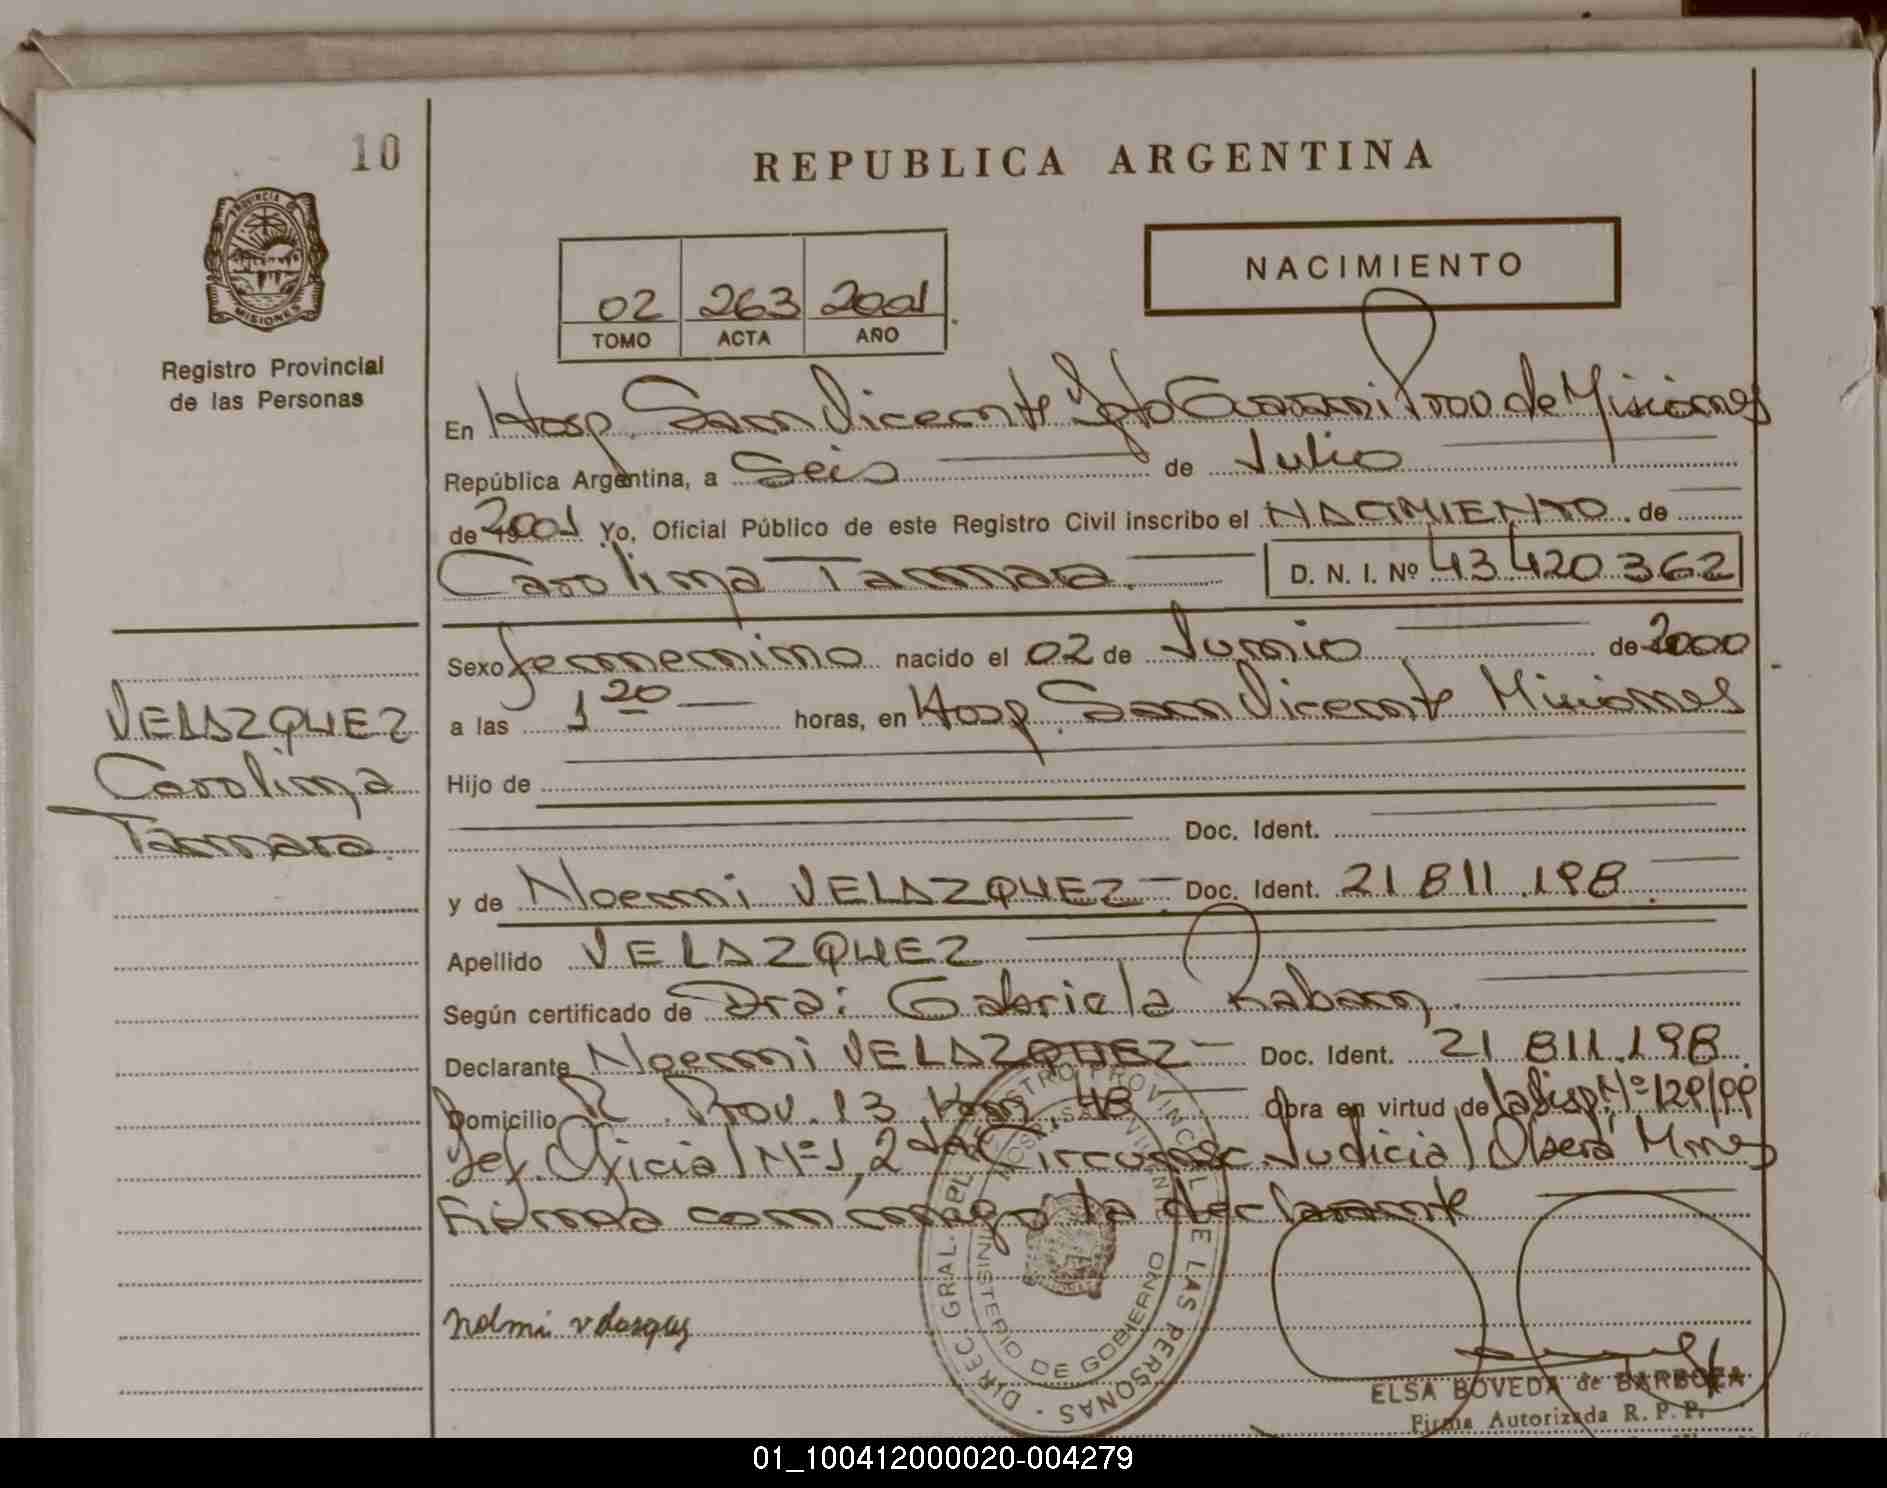 10
REPUBLICA ARGENTINA
PROVINCIA DE
MISIONES
Registro Provincial
de las Personas
02 263 2001
TOMO ACTA AÑO
NACIMIENTO
En Hosp. San Vicente Dpto Guarani Prov de Misiones
República Argentina, a Seis de Julio
de 19 2001 Yo, Oficial Público de este Registro Civil inscribo el NACIMIENTO de
Carolina Tamara. D. N. I. Nº 43 420 362
Sexo femenino nacido el 02 de Junio de 2000
a las 1 20 horas, en Hosp. San Vicente Misiones
VELAZQUEZ
Carolina
Tamara.
Hijo de
Doc. Ident.
y de Noemi VELAZQUEZ Doc. Ident. 21 811.198.
Apellido VELAZQUEZ
Según certificado de Dra: Gabriela Rabam.
Declarante Noemi VELAZQUEZ Doc. Ident. 21 811.198.
Domicilio R. Prov. 13 Km. 48 Obra en virtud de la Disp. Nº 129/99
Def. Oficial Nº 1, 2da Circunsc. Judicial Obera Mnes
Firma conmigo la declarante
DIREC. GRAL. REGISTRO PROVINCIAL DE LAS PERSONAS
MINISTERIO DE GOBIERNO
HOSP. SAN VICENTE
ELSA BOVEDA de BARBOZA
Firma Autorizada R. P. P.
01_100412000020-004279